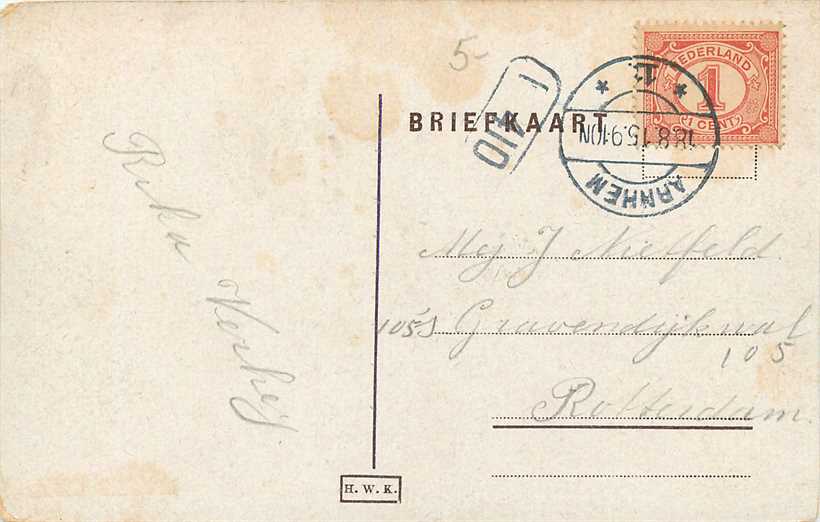 5-
NEDERLAND
1
1 CENT
BRIEFKAART
ARNHEM
18.8.15.9-10N
Reka Verheij
Mej J Nielfeld
105 Gravendijkwal
105
Rotterdam.
H. W. K.